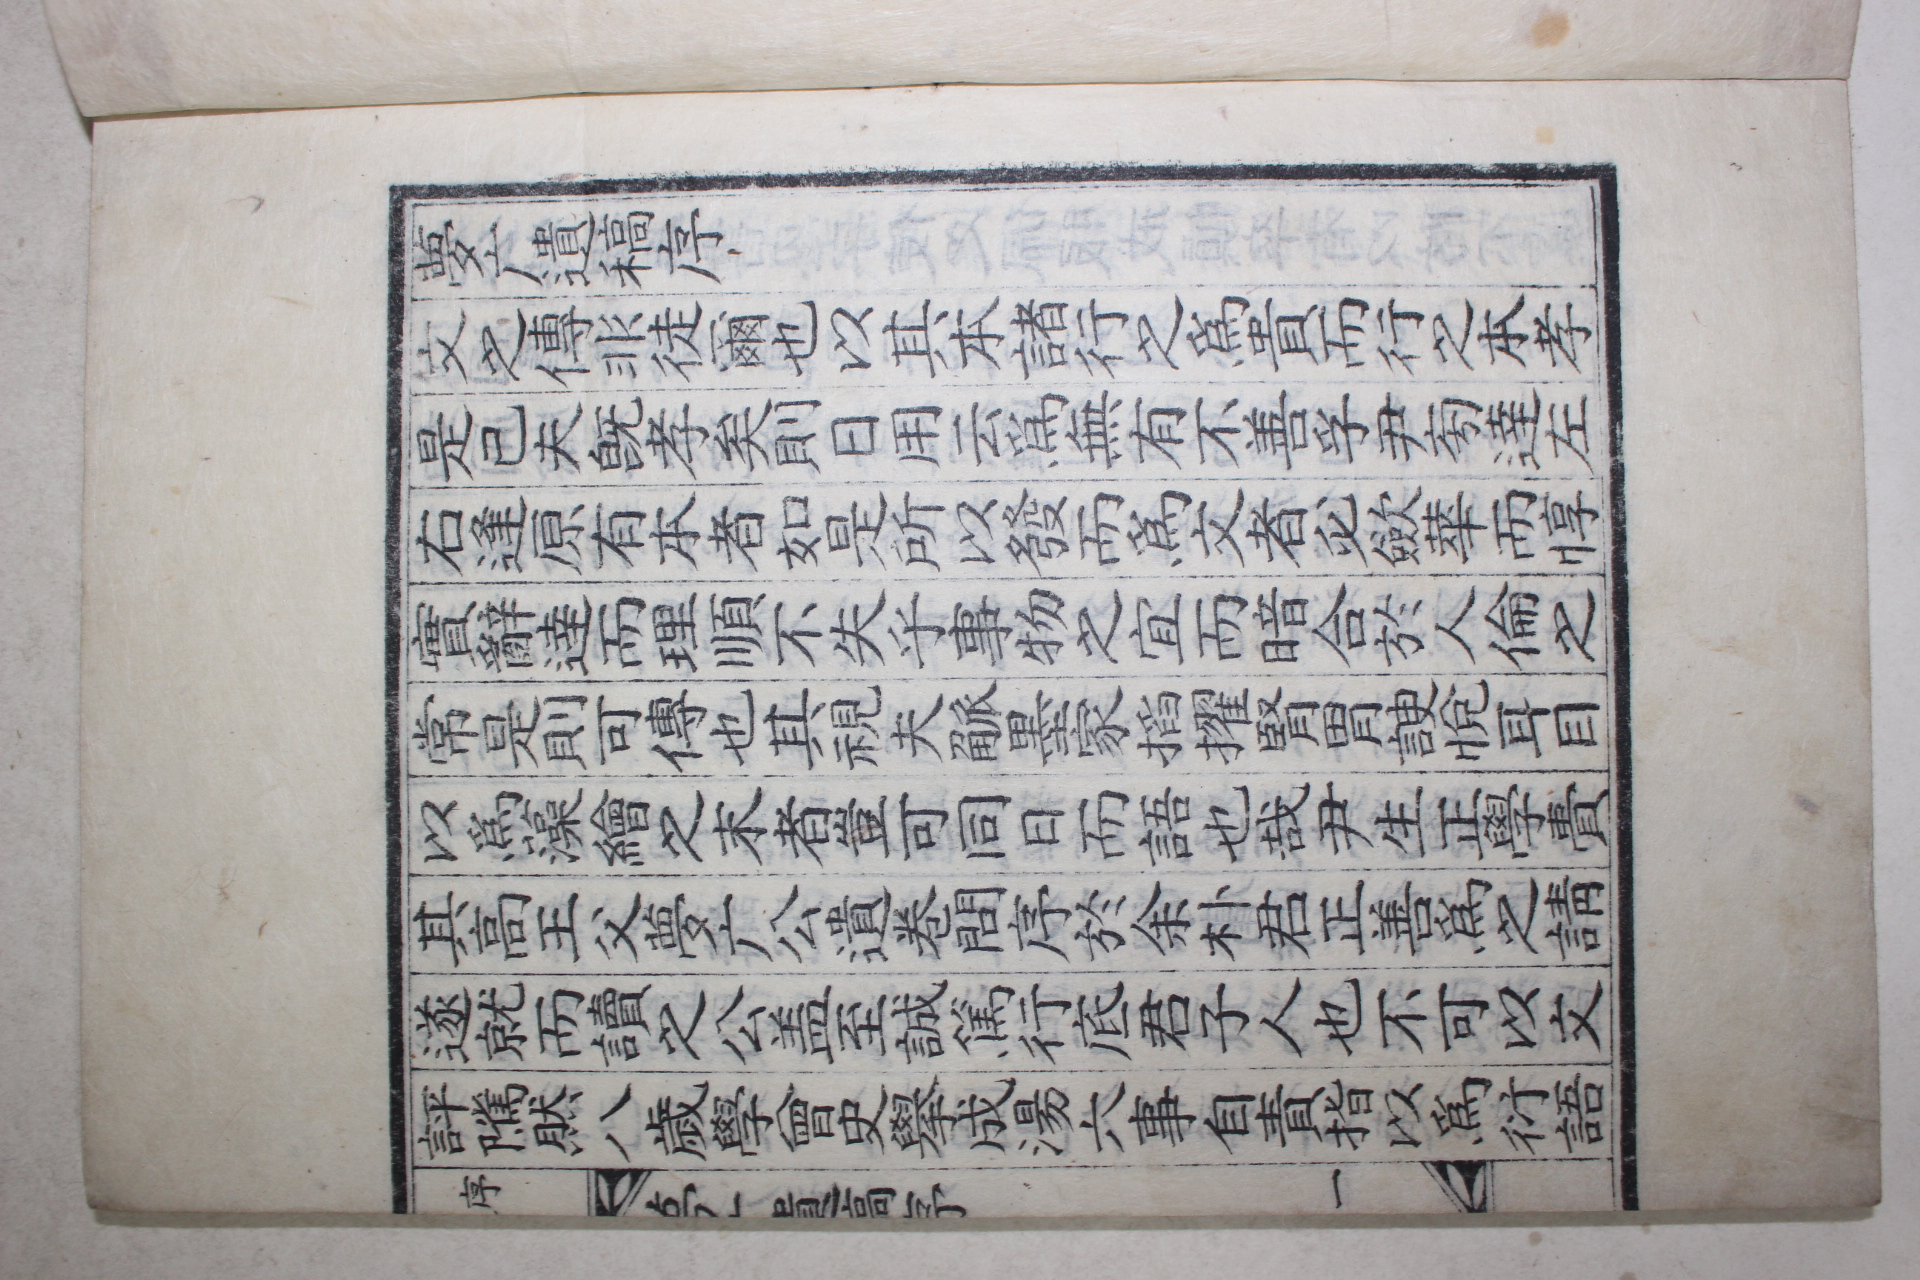 夢广遺稿序
文之傳非徒爾也以其本諸行之爲貴而行之本孝
是已夫旣孝矣則日用云爲無有不善孚尹旁達左
右逢原有本者如是所以發而爲文者必斂華而惇
實辭達而理順不失乎事物之宜而暗合於人倫之
常是則可傳也其視夫觚墨家掐擢腎胃謏悅耳目
以爲藻繪之末者豈可同日而語也哉尹生正學賷
其高王父夢广公遺卷問序於余朴君正善爲之請
遂就而讀之公盖至誠篤行底君子人也不可以文
評隲然八歲學曾史擧成湯六事自責指以爲衍語
序
夢广遺稿序 一